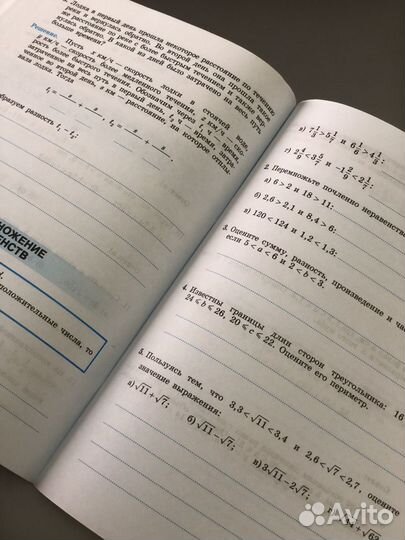 Лодка в первый день прошла некоторое расстояние по течению
и вернулась обратно. Во второй день она прошла такое
же расстояние по реке с более быстрым течением и также вер-
нулась обратно. В какой из дней было затрачено на весь путь
больше времени?
Решение. Пусть x км/ч — скорость лодки в стоячей воде,
скорость медленного течения, z км/ч — ско-
рость более быстрого течения. Обозначим через t₁ ч — время,
затраченное на весь путь в первый день,
ченное во второй день, s км — расстояние, на которое отплы-
вала лодка. Тогда
t₁ = — + —, t₂ = — + —.
разность t₁ - t₂:
НОЖЕНИЕ
ЕНСТВ
положительные числа, то
в) 7 1/3 > 5 1/7 и 6 1/6 > 4 1/3;
г) 2 4/9 < 3 5/7 и -1 2/9 < 2 1/7;
2. Перемножьте почленно неравенства
а) 6 > 2 и 18 > 11;
б) 2,6 > 2,1 и 8,4 > 6;
в) 120 < 124 и 1,2 < 1,3;
3. Оцените сумму, разность, произведение и час
если 5 < a < 6 и 2 < b < 3.
4. Известны границы длин сторон треугольника: 16
24 ⩽ b ⩽ 26, 20 ⩽ c ⩽ 22. Оцените его периметр.
5. Пользуясь тем, что 3,3 < √11 < 3,4 и 2,6 < √7 < 2,7, оцените
значение выражения:
а) √11 + √7;
б) √11 - √7;
в) 3√11 - 2√7;
Avito